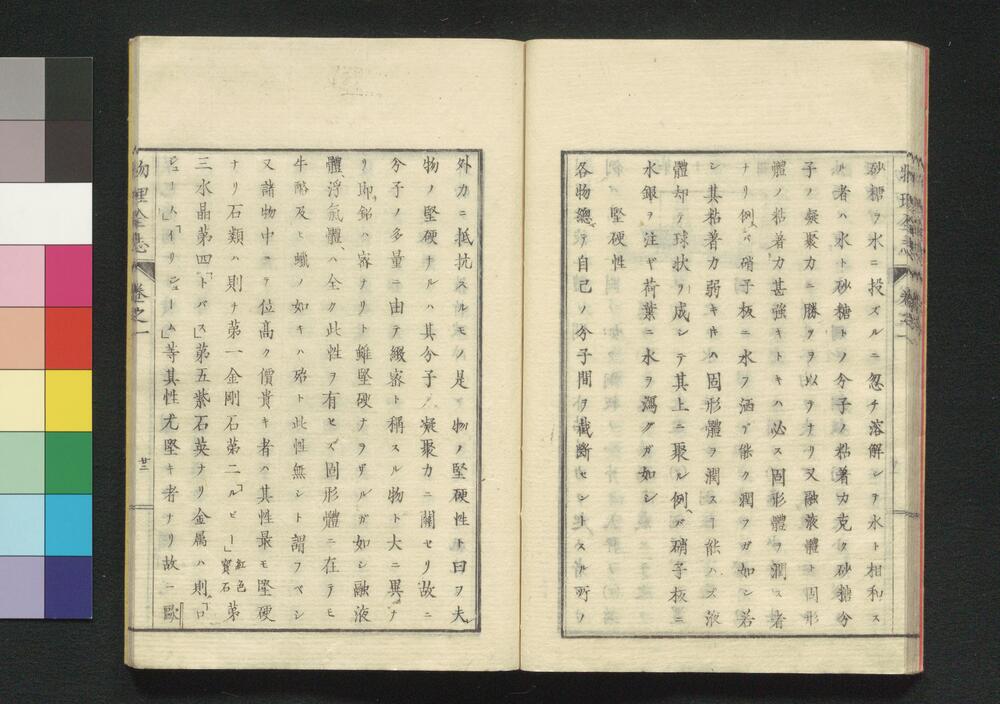 砂糖ヲ水ニ投ズルニ忽チ溶解シテ水ト相和ス
ル者ハ水ト砂糖トノ分子ノ粘著力克ク砂糖分
子ノ凝聚力ニ勝ツヲ以テナリ又融液體ト固形
體ノ粘著力甚強キトキハ必ス固形體ヲ潤ス者
ナリ例ヘバ硝子板ニ水ヲ洒ゲハ能ク潤フガ如シ若
シ其粘著力弱キ𪜈ハ固形體ヲ潤スヿ能ハズ液
體却テ球狀ヲ成シテ其上ニ聚ル例ヘバ硝子板ニ
水銀ヲ注ギ荷葉ニ水ヲ瀉グガ如シ
堅硬性
各物總テ自己ノ分子間ヲ截斷セントスル所ノ
外力ニ抵抗スルモノ是ヲ物ノ堅硬性ト曰フ夫
物ノ堅硬ナルハ其分子ノ凝聚力ニ關セリ故ニ
分子ノ多量ニ由テ緻密ト稱スル物ト大ニ異ナ
リ即鉛ハ密ナリト雖堅硬ナラザルガ如シ融液
體、浮氣體、ハ全ク此性ヲ有セズ固形體ニ在テモ
牛酪及ヒ蠟ノ如キハ殆ト此性無シト謂フベシ
又諸物中ニテ位高ク價貴キ者ハ其性最モ堅硬
ナリ石類ハ則チ第一金剛石第二「ルビー」紅色寳石第
三水晶第四「トパース」第五紫石英ナリ金属ハ則「ロ
ジューム」「イリジューム」等其性尤堅キ者ナリ故ニ歐
物理全志
卷之一
廿三